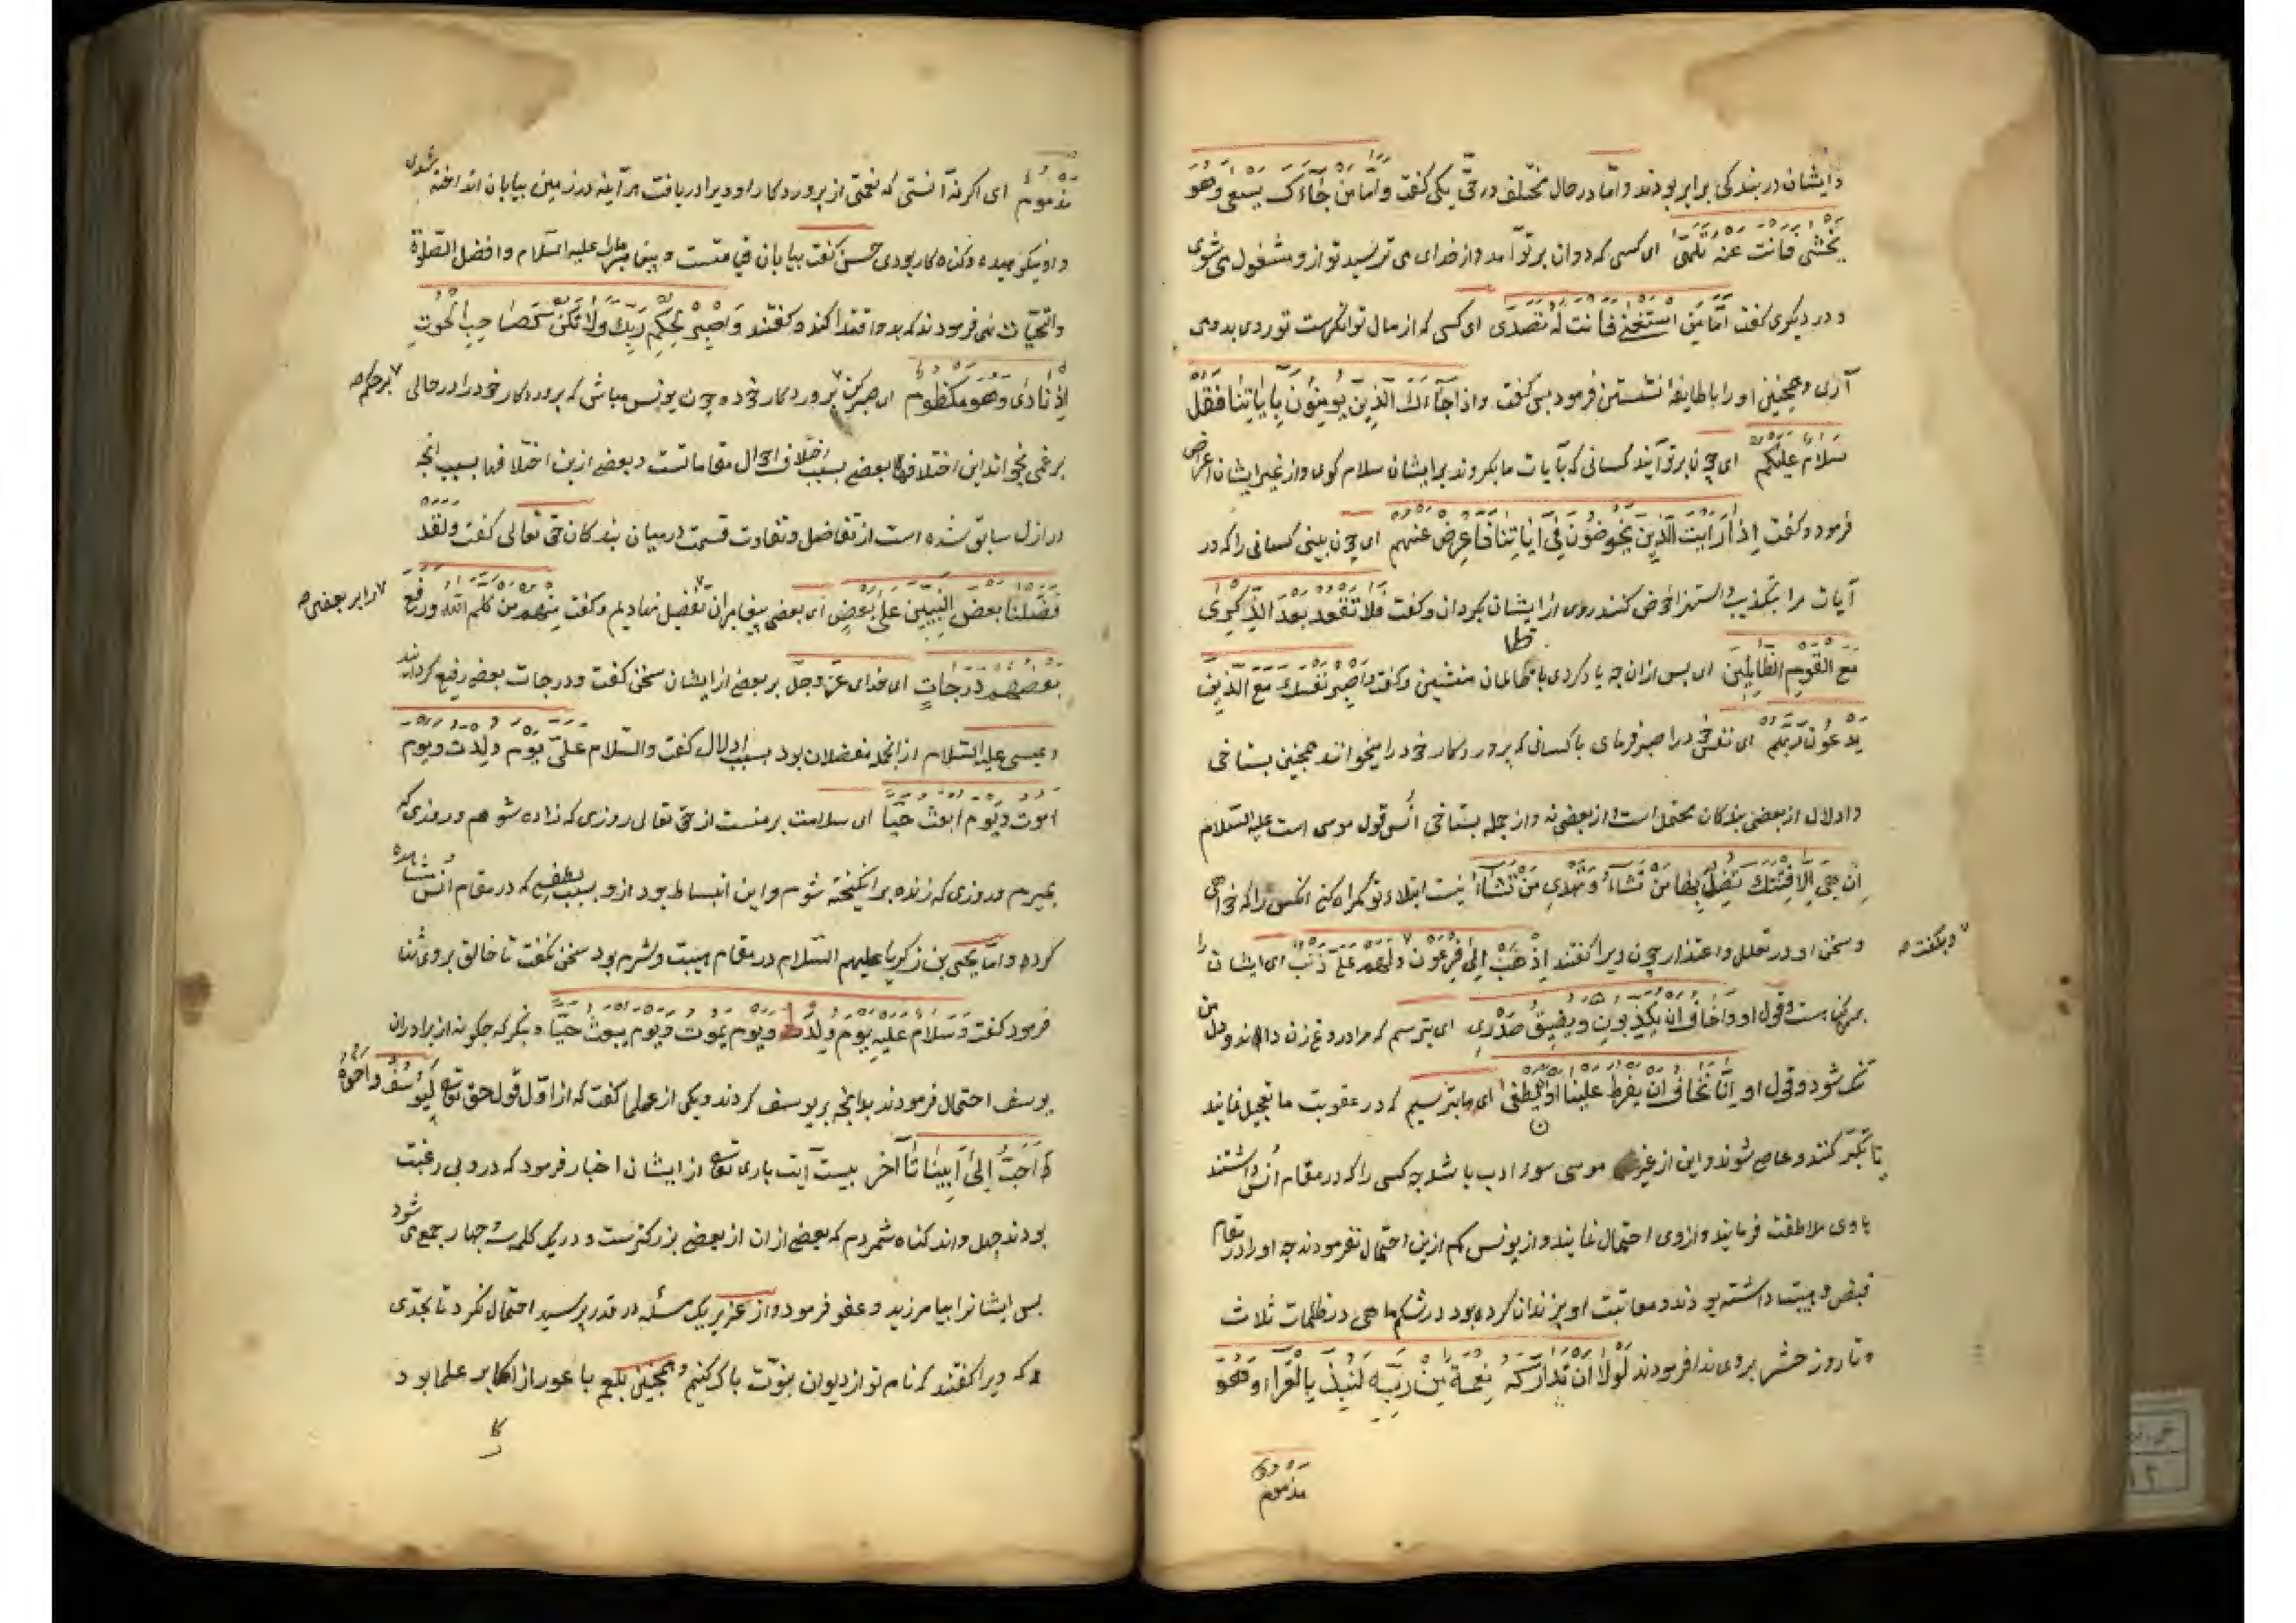 و ایشان در بندکی برابر بودند و امّا در حال مختلف در حقّ یکی گفت وَاَمَّا مَنْ جَآءَکَ یَسْعٰی وَهُوَ
یَخْشٰی فَاَنْتَ عَنْهُ تَلَهّٰی ای کسی که دوان بر تو آمد و از خدای می ترسید تو ازو مشغول می شوی
و در دیکری گفت اَمَّا مَنِ اسْتَغْنٰی فَاَنْتَ لَهُ تَصَدّٰی ای کسی که از مال توانکرست تو روی بدو می
آری و همچنین او را با طایفهٔ نشستن فرمود بس گفت وَاِذَا جَآءَکَ الَّذِیْنَ یُؤْمِنُوْنَ بِاٰیَاتِنَا فَقُلْ
سَلَامٌ عَلَیْکُمْ ای چون بر تو آیند کسانی که بآیات ما بکروند بر ایشان سلام کوی و از غیر ایشان اعراض
فرمود و گفت اِذَا رَاَیْتَ الَّذِیْنَ یَخُوضُوْنَ فِی اٰیَاتِنَا فَاَعْرِضْ عَنْهُمْ ای چون بینی کسانی را که در
آیات ما بتکذیب و استهزا خوض کنند روی از ایشان بکردان و گفت فَلَا تَقْعُدْ بَعْدَ الذِّکْرٰی
مَعَ الْقَوْمِ الظَّالِمِیْنَ ای بس از ان چه یاد کردی با ظالمان منشین و گفت وَاصْبِرْ نَفْسَکَ مَعَ الَّذِیْنَ
یَدْعُوْنَ رَبَّهُمْ ای نفس خود را صبر فرمای با کسانی که پروردکار خود را میخوانند همچنین بستاخی
و ادلال از بعضی بندکان محتمل است و از بعضی نه و از جمله بستاخی اُنس قول موسی است علیه السّلام
اِنْ هِیَ اِلَّا فِتْنَتُکَ تُضِلُّ بِهَا مَنْ تَشَآءُ وَتَهْدِی مَنْ تَشَآءُ نیست ابتلاء تو کمراه کنی انکس را که خواهی
و سخن او در تعلل و اعتذار چون ویرا گفتند اِذْهَبْ اِلٰی فِرْعَوْنَ وَلَهُمْ عَلَیَّ ذَنْبٌ ای ایشان را
و بگفته
بر من کناهست و قول او وَاَخَافُ اَنْ یُکَذِّبُوْنِ وَیَضِیْقُ صَدْرِی ای بترسم که مرا دروغ زن دارند و دل من
تنک شود و قول او اِنَّنَا نَخَافُ اَنْ یَفْرُطَ عَلَیْنَا اَوْ اَنْ یَطْغٰی ای ما بترسیم که در عقوبت ما تعجیل نمایند
یا تکبّر کنند و عاصی شوند و این از غیر موسی سوء ادب باشد چه کسی را که در مقام اُنس داشتند
با وی ملاطفت فرمایند و از وی احتمال نمایند و از یونس کم ازین احتمال نفرمودند چه او را در مقام
قبض و هیبت داشته بودند و معاتبت او بزندان کرده بود در شکم ماهی در ظلمات ثلاث
و تا روز حشر بر وی ندا فرمودند لَوْلَا اَنْ تَدَارَکَهُ نِعْمَةٌ مِنْ رَبِّهِ لَنُبِذَ بِالْعَرَاءِ وَهُوَ
مذموم
مَذْمُومٌ ای اکر نه آنستی که نعمتی از پروردکار او ویرا دریافت هرآینه در زمین بیابان انداخته شدی
و او نکوهیده و کناه کار بودی حسن گفت بیابان قیامتست و پیغامبر ما را علیه السلام و افضل الصّلوة
والتحیّات نمی فرمودند که بدو اقتدا کند و گفتند وَاصْبِرْ لِحُکْمِ رَبِّکَ وَلَا تَکُنْ کَصَاحِبِ الْحُوْتِ
اِذْ نَادٰی وَهُوَ مَکْظُوْمٌ ای صبر کن پروردکار خود و چون یونس مباش که پروردکار خود را در حالی
بر حکم
بر غمی بخواند این اختلافها بعضی بسبب اختلاف احوال مقاماتست و بعضی ازین اختلافها بسبب آنچه
در ازل سابق شده است از تفاضل و تفاوت قسمت در میان بندکان حق تعالی گفت وَلَقَدْ
فَضَّلْنَا بَعْضَ النَّبِیِّیْنَ عَلٰی بَعْضٍ ای بعضی پیغامبران تفضیل نهادیم و گفت مِنْهُمْ مَنْ کَلَّمَ اللّٰهُ وَرَفَعَ
را بر بعضی
بَعْضَهُمْ دَرَجَاتٍ ای خدای عزّ وجلّ بر بعضی از ایشان سخن گفت و درجات بعضی رفیع کردانید
و عیسی علیه السّلام از جمله مفضلان بود بسبب ادلال گفت وَالسَّلَامُ عَلَیَّ یَوْمَ وُلِدْتُ وَیَوْمَ
اَمُوْتُ وَیَوْمَ اُبْعَثُ حَیًّا ای سلامت بر منست از حق تعالی روزی که زاده شوم و روزی که
بمیرم و روزی که زنده برانکیخته شوم و این انبساط بود ازو بسبب لطفی که در مقام اُنس مشاهده
کرده و امّا یحیی بن زکریا علیهم السّلام در مقام هیبت و شرم بود سخن نکفت تا خالق بر وی ثنا
فرمود گفت وَسَلَامٌ عَلَیْهِ یَوْمَ وُلِدَ وَیَوْمَ یَمُوْتُ وَیَوْمَ یُبْعَثُ حَیًّا و بنکر که چکونه از برادران
یوسف احتمال فرمودند بدانچه بر یوسف کردند و یکی از علما گفت که از اوّل قول حق تعالی لَیُوْسُفُ وَاَخُوْهُ
اَحَبُّ اِلٰی اَبِیْنَا تا آخر بیست آیت باری تعالی از ایشان اخبار فرمود که در و بی رغبت
بودند چهل و اند کناه شمردم که بعضی از ان از بعضی بزرکترست و در یک کلمه سه چهار جمع می شود
بس ایشانرا بیامرزید و عفو فرمود و از عزیر یک مسئله در قدر پرسید احتمال نکرد تا بحدّی
که ویرا گفتند که نام تو از دیوان نبوّت پاک کنیم و همچنین بلعم باعور از اکابر علما بود